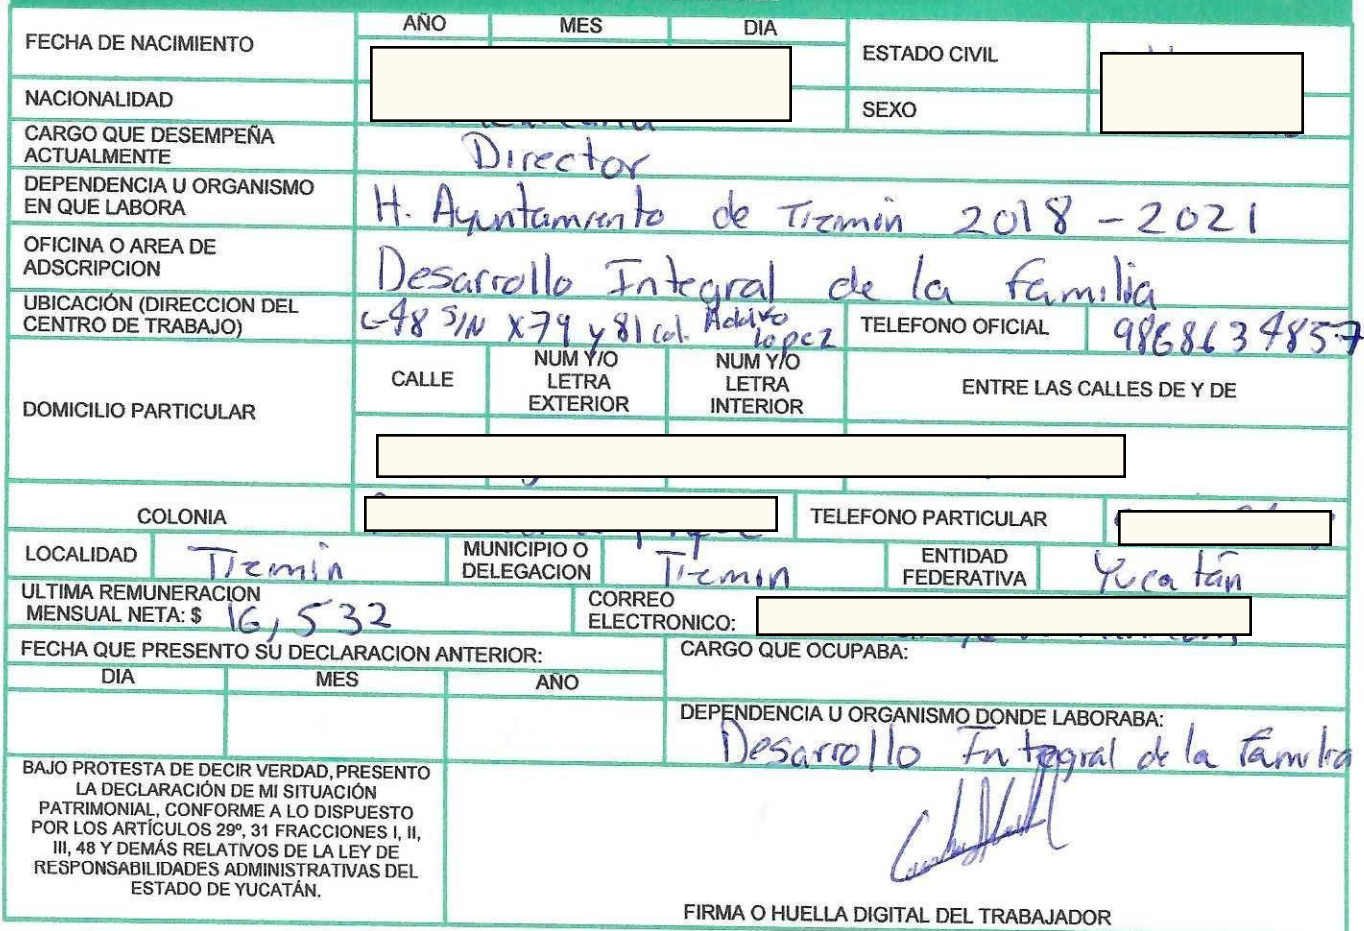 AÑO MES DIA
FECHA DE NACIMIENTO
ESTADO CIVIL
NACIONALIDAD
SEXO
CARGO QUE DESEMPEÑA
ACTUALMENTE
Director
DEPENDENCIA U ORGANISMO
EN QUE LABORA
H. Ayuntamiento de Tizmin 2018 - 2021
OFICINA O AREA DE
ADSCRIPCION
Desarrollo Integral de la familia
UBICACIÓN (DIRECCION DEL
CENTRO DE TRABAJO)
C-48 S/N x 79 y 81 col. Lopez
TELEFONO OFICIAL
9868634857
DOMICILIO PARTICULAR
CALLE
NUM Y/O
LETRA
EXTERIOR
NUM Y/O
LETRA
INTERIOR
ENTRE LAS CALLES DE Y DE
COLONIA
TELEFONO PARTICULAR
LOCALIDAD Tizmin
MUNICIPIO O
DELEGACION
Tizmin
ENTIDAD
FEDERATIVA
Yucatán
ULTIMA REMUNERACION
MENSUAL NETA: $ 16,532
CORREO
ELECTRONICO:
FECHA QUE PRESENTO SU DECLARACION ANTERIOR:
CARGO QUE OCUPABA:
DIA MES AÑO
DEPENDENCIA U ORGANISMO DONDE LABORABA:
Desarrollo Integral de la familia
BAJO PROTESTA DE DECIR VERDAD, PRESENTO
LA DECLARACIÓN DE MI SITUACIÓN
PATRIMONIAL, CONFORME A LO DISPUESTO
POR LOS ARTÍCULOS 29º, 31 FRACCIONES I, II,
III, 48 Y DEMÁS RELATIVOS DE LA LEY DE
RESPONSABILIDADES ADMINISTRATIVAS DEL
ESTADO DE YUCATÁN.
FIRMA O HUELLA DIGITAL DEL TRABAJADOR